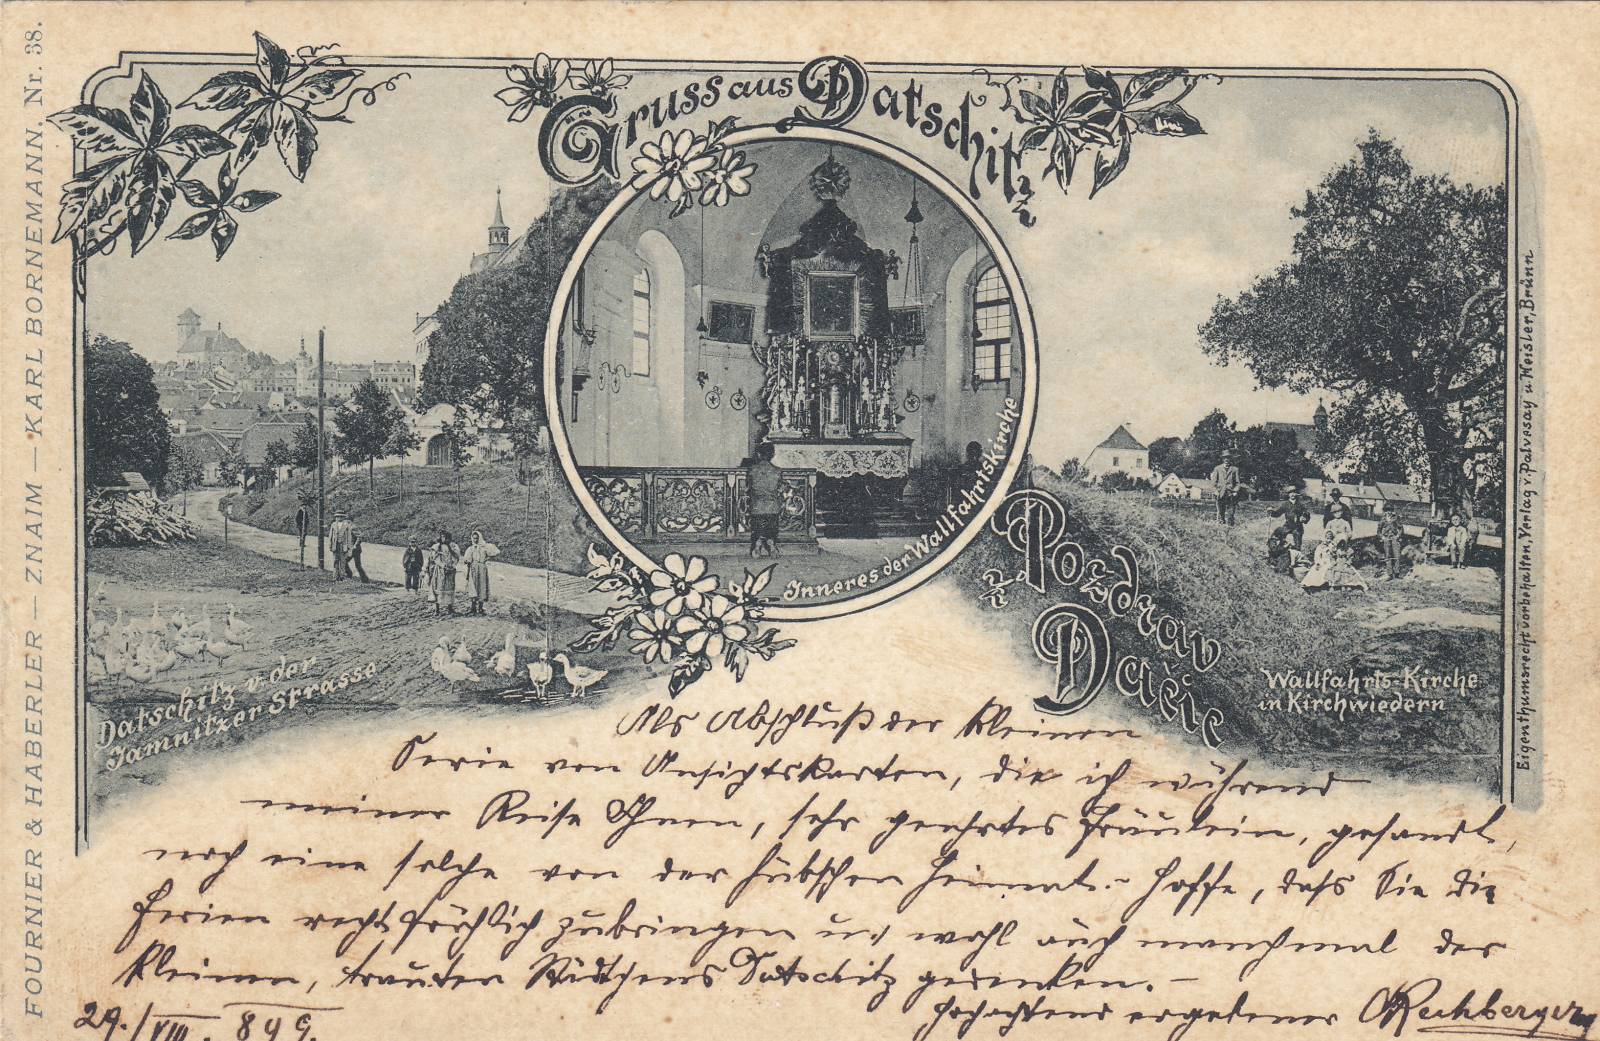 FOURNIER & HABERLER — ZNAIM — KARL BORNEMANN. Nr. 38.
Gruss aus Datschitz
Inneres der Wallfahrtskirche
Pozdrav
z Dačic
Datschitz v. der
Jamnitzer Strasse
Wallfahrts-Kirche
in Kirchwiedern
Eigenthumsrecht vorbehalten, Verlag v. Palvesay u. Heisler, Brünn
Als Abschluß der kleinen
Serie von Ansichtskarten, die ich während
meiner Reise Ihnen, sehr geehrtes Fräulein, gesandt,
noch eine solche von der hübschen Heimat.- Hoffe, daß Sie die
Ferien recht fröhlich zubringen und wohl auch manchmal der
kleinen, trauten Städtchens Datschitz gedenken.-
Hochachtend ergebener Rechberger
29./VIII. 899.